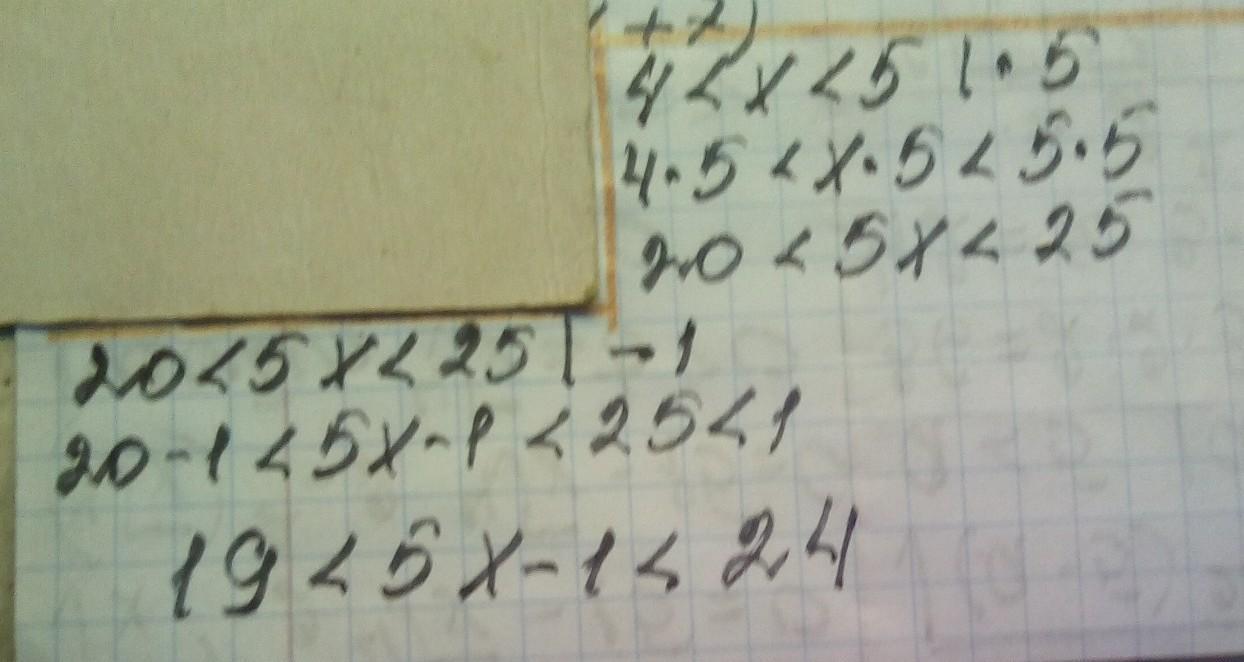 + 7)
4 < x < 5 | · 5
4 · 5 < x · 5 < 5 · 5
20 < 5x < 25
20 < 5x < 25 | - 1
20 - 1 < 5x - 1 < 25 < 1
19 < 5x - 1 < 24